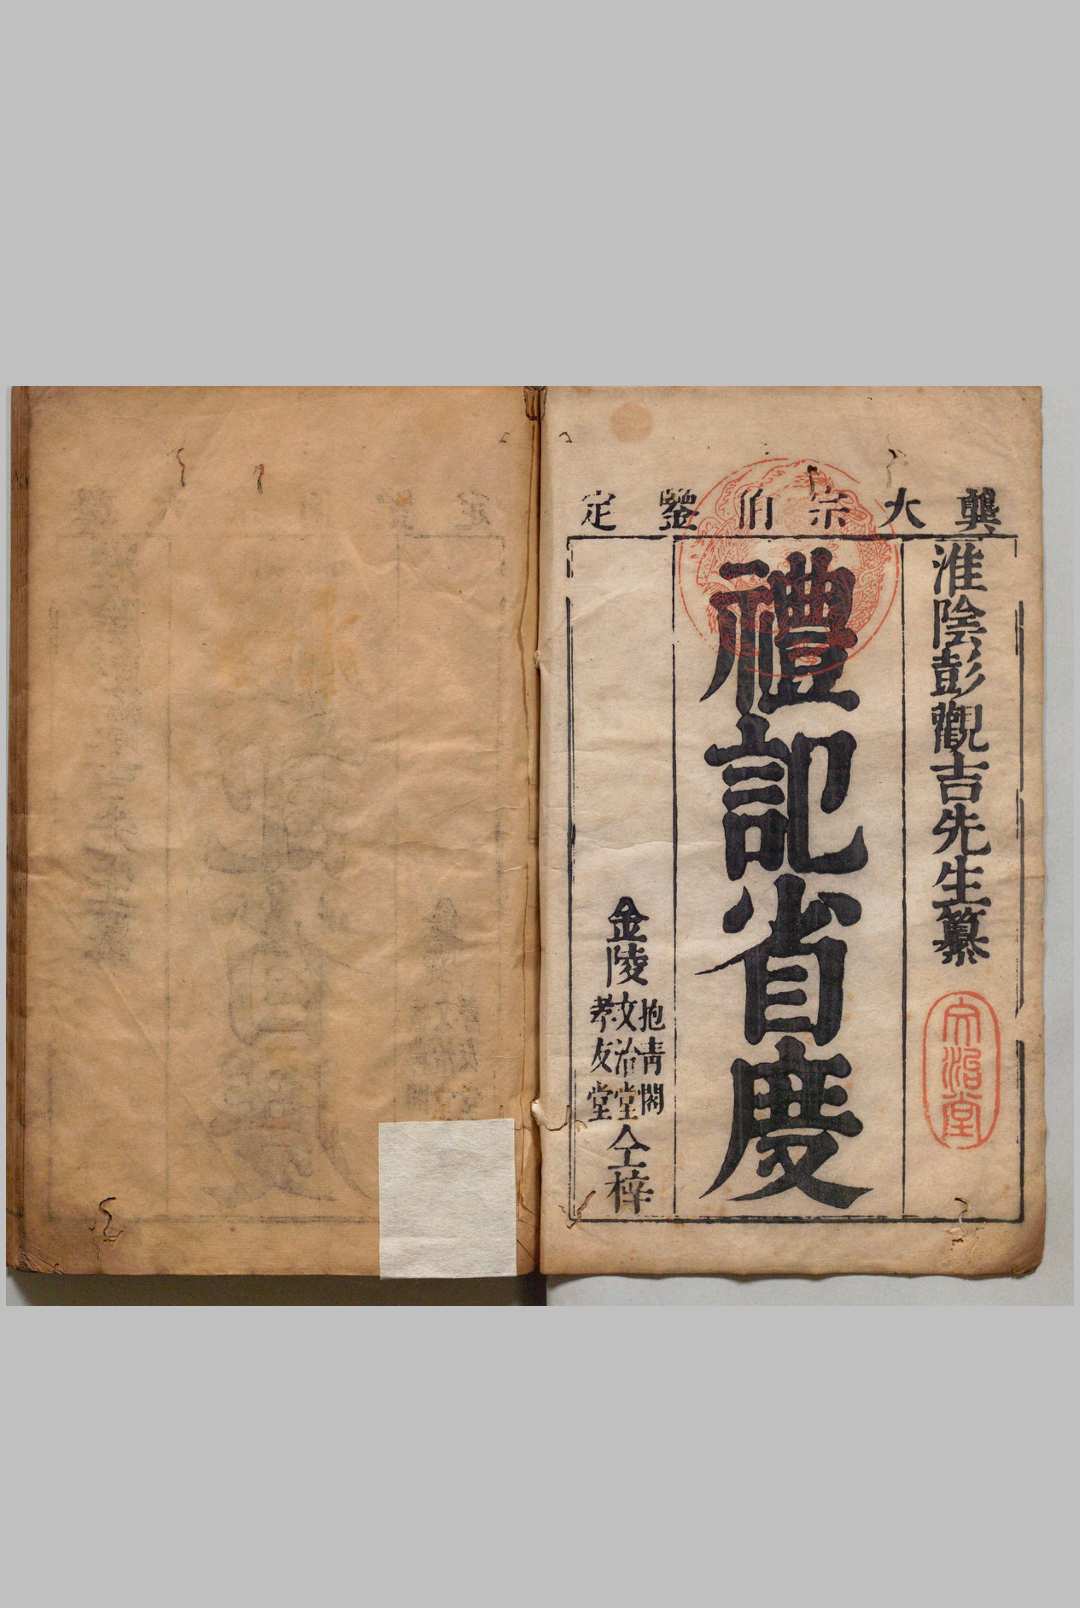 龔大宗伯鑒定
淮陰彭觀吉先生纂
文治堂
禮記省度
金陵
抱青閣
文治堂
孝友堂
仝梓